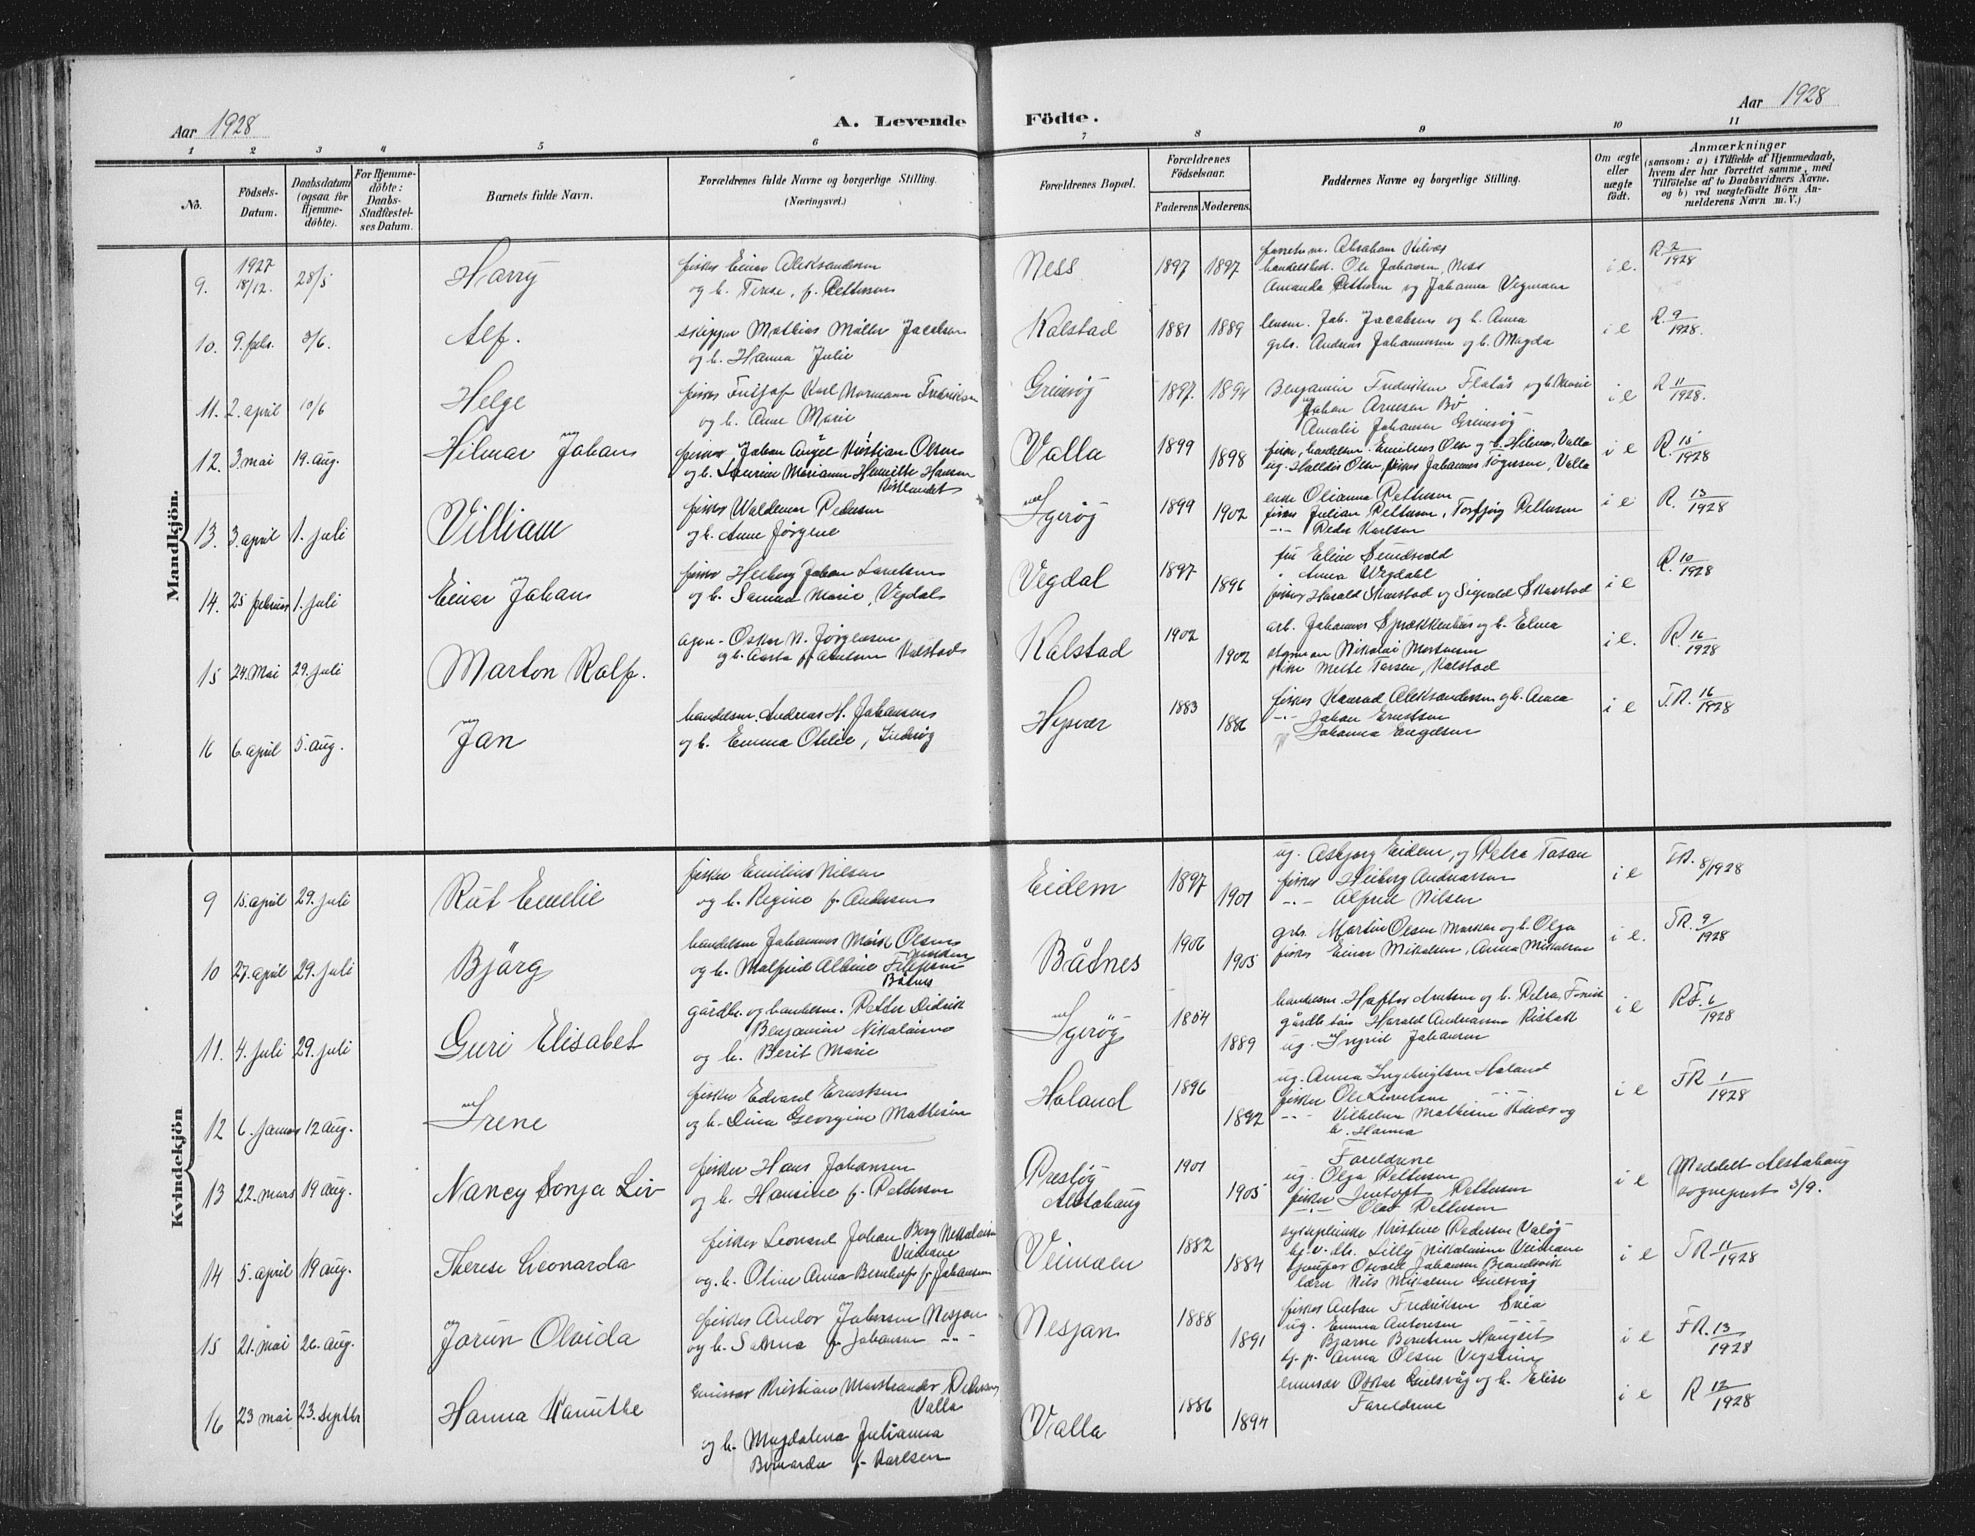 Aar 1928
A. Levende Födte.
Aar 1928
1 2 3 4 5 6 7 8 9 10 11
No.
Födsels-Datum.
Daabsdatum (ogsaa for Hjemme-döbte).
For Hjemme-döbte: Daabs-Stadfæstelses Datum.
Barnets fulde Navn.
Forældrenes fulde Navne og borgerlige Stilling. (Næringsvei.)
Forældrenes Bopæl.
Forældrenes Födselsaar.
Faderens. Moderens.
Faddernes Navne og borgerlige Stilling.
Om ægte eller uægte födt.
Anmærkninger
(saasom: a) i Tilfælde af Hjemmedaab, hvem der har forrettet samme, med Tilföielse af to Daabsvidners Navne. og b) ved uægtefödte Börn Anmelderens Navn m. V.)
Mandkjön.
9. 1927 18/12. 28/5 Harry
fisker Einar Aleksandersen
og h. Terese, f. Pettersen
Ness 1897 1897
Abraham Kilvær
handelsbest. Ole Johansen, Ness
Amanda Pettersen og Johanna Vegmoen
i e. R. 2/1928
10. 9. febr. 3/6. Alf.
skipper Mathias Møller Jacobsen
og h. Hanna Julie
Kalstad 1881 1889
lensm. Joh. Jacobsen og h. Anna
grb. Andreas Johannessen og h. Magda
i e R. 9/1928.
11. 2. april 10/6 Helge
fisker Fritjof Karl Normann Fredriksen
og h. Anne Marie
Grimsøy 1897. 1894
Benjamin Fredriksen Flatøs og h. Marie
Johan Arnesen Bø
Amalie Johansen Grimsøy
i e R 11/1928.
12. 3. mai 19. aug. Hilmar Johans
fisker Johan Angel Kristian Olsen
og h. Laurine Marianne Henriette Hansen
Valla 1899 1898
fisker, handelsm. Emilius Olsen og h. Hilma, Valla
ug. Halldis Olsen, fisker Johannes Tøgersen, Valla
i e R. 15/1928
13. 3. april 1. juli Villiam
fisker Waldemar Pedersen
og h. Anne Jørgine
Igerøy 1899 1902
enke Olianna Pettersen
fisker Julian Pettersen, Torbjørg Pettersen
-"- Peder Karlsen
i e R. 13/1928
14. 25 februar 1. juli Einar Johans
fisker Heiberg Johan Lorentsen
og h. Sanna Marie, Vegdal
Vegdal 1897 1896
fru Eline Sundsvold
" Anna Vegdahl
fisker Harald Skarstad og Sigvald Skarstad
i e R. 10/1928
15 24. Mai 29. juli Marton Rolf.
agen- Oskar N. Jørgensen
og h. Aasta f. Arntsen Kalstad
Kalstad 1902 1902
arb. Johannes Sprækkenhus og h. Elma
Nikolai Mortensen
Mette Tarsen, Kalstad
i e. R. 16/1928
16 6. april 5. aug. Jan
handelsm. Andreas H. Johansens
og h. Emma Otilie,
Hysvær 1883 1886
fisker Konrad Aleksandersen og h. Anna
-"- Johan Ernstsen
Johanna Engelsen
i e T.R. 16/1928
Kvindekjön
9 15. april 29. juli Rut Emelie
fisker Emilius Nilsen
og h. Regine f. Andersen
Eidem 1897 1901
ug. Asbjørg Eidem, og Petra Tasan
fisker Heiberg Andreassen
-"- Alfred Nilsen
i e T.R. 8/1928
10 27. april 29. juli Bjørg
handelsm Johannes Marsk Olsen
og h. Malfrid Albine
Båtnes
Båtnes 1906 1905
grb. Martin Olsen Marken og h. Olga
fisker Einar Mikalsen, Anna Mikalsen
i e. T.R. 9/1928
11. 4. juli 29. juli Guri Elisabet
gårdbr. og handelsm. Petter Didrik
Benjamin Nikolaisen
og h. Berit Marie
Igerøy 1884 1889
handelsm. Hafter Arntsen og h. Petra,
Harald Andreassen
ug. Ingrid Johansen
i e RF. 6/1928
12 6. januar 12 aug. Irene
fisker Edvard Ernstsen
og h. Dina Georgine Mathisen
Holand 1896 1892
ug. Anna Ingebrigtsen Holand
fisker Ole Lorentsen -"-
-"- Vilhelm Mathisen Kilvær og
h. Hanna
i e TR 1/1928
13 22. mars 19 aug. Nancy Sonja Liv
fisker Hans Johansen
og h. Hansine f. Pettersen
Prestøy Alstahaug 1901 1905
Foreldrene
ug. Olga Pettersen
fisker Pettersen
-"- Olav Pettersen
i e Meddelt Alstahaug
sogneprest 3/9.
14 5. april 19 aug. Therese Leonarda
fisker Leonard Johan Berg Nikolaisen
Veimoen
og h. Oline Anna Bernhof f. Johansen
Veimoen 1882 1884
sykepleierske Kristine Pedersen Valøy
Lilly Nikolaisen Veimoen
Osvald Johansen Brandsvik
lærer Nils Mikalsen Gulsvåg
i e T.R. 11/1928
15 21. mai 26. aug. Jorun Olvida
fisker Andor Johansen Nesjan
og h. Sanna f. Johansen -"-
Nesjan 1888 1891
fisker Anton Fredriksen
ug. Emma Antonsen
Bjarne Berntsen
Anna Olsen
i e F.R. 13/1928
16 23 mai 23. septbr Hanna Kanutte
emissær Kristian Marstrander Pedersen
Valla
og h. Magdalena Julianna
Bernarda f. Karlsen
Valla 1886 1894
emissær Oskar Gulsvåg og h. Elise
Foreldrene
i e R 12/1928